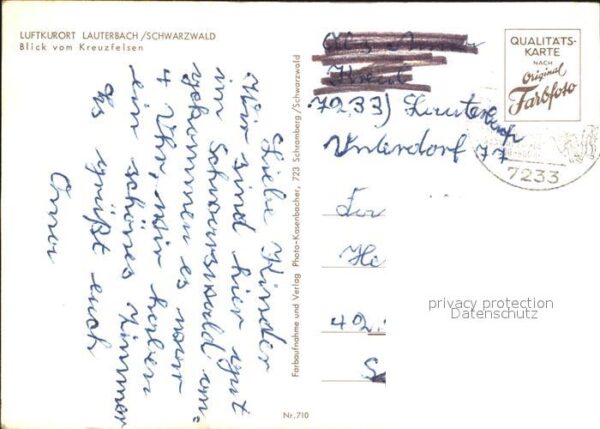 LUFTKURORT LAUTERBACH/SCHWARZWALD
Blick vom Kreuzfelsen
Liebe Kinder
Wir sind hier gut
im Schwarzwald an=
gekommen es war
4 Uhr, wir haben
ein schönes Zimmer
Es grüßt euch
Oma
Farbaufnahme und Verlag Photo-Kasenbacher, 723 Schramberg/Schwarzwald
Nr. 710
7233) Lauterbach
Unterdorf 77
QUALITÄTS-
KARTE
NACH
Original
Farbfoto
7233
402
privacy protection
Datenschutz